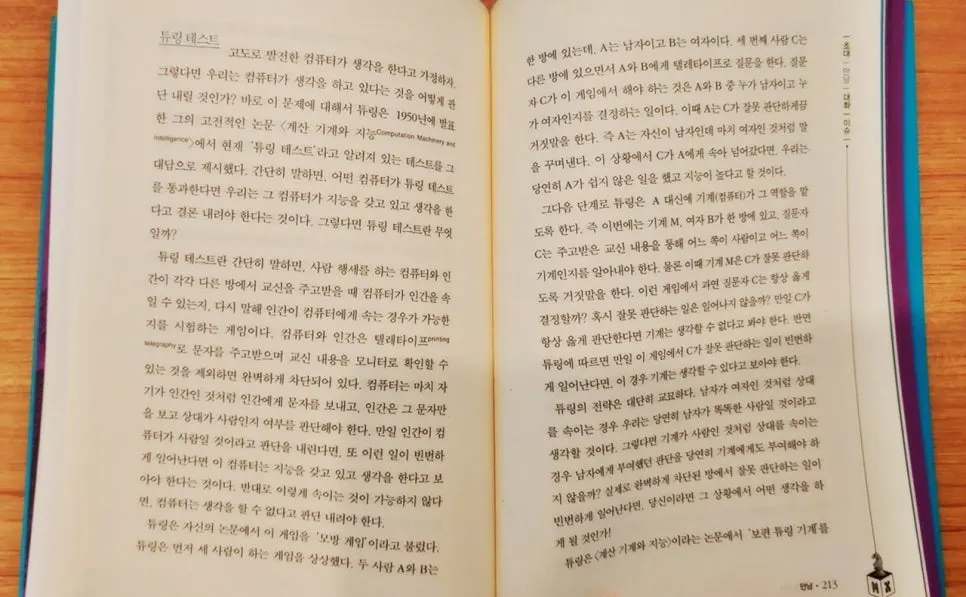 튜링 테스트
고도로 발전한 컴퓨터가 생각을 한다고 가정하자.
그렇다면 우리는 컴퓨터가 생각을 하고 있다는 것을 어떻게 판
단 내릴 것인가? 바로 이 문제에 대해서 튜링은 1950년에 발표
한 그의 고전적인 논문 〈계산 기계와 지능Computation Machinery and
Intelligence〉에서 현재 '튜링 테스트'라고 알려져 있는 테스트를 그
대답으로 제시했다. 간단히 말하면, 어떤 컴퓨터가 튜링 테스트
를 통과한다면 우리는 그 컴퓨터가 지능을 갖고 있고 생각을 한
다고 결론 내려야 한다는 것이다. 그렇다면 튜링 테스트란 무엇
일까?
튜링 테스트란 간단히 말하면, 사람 행세를 하는 컴퓨터와 인
간이 각각 다른 방에서 교신을 주고받을 때 컴퓨터가 인간을 속
일 수 있는지, 다시 말해 인간이 컴퓨터에게 속는 경우가 가능한
지를 시험하는 게임이다. 컴퓨터와 인간은 텔레타이프printing
telegraphy로 문자를 주고받으며 교신 내용을 모니터로 확인할 수
있는 것을 제외하면 완벽하게 차단되어 있다. 컴퓨터는 마치 자
기가 인간인 것처럼 인간에게 문자를 보내고, 인간은 그 문자만
을 보고 상대가 사람인지 여부를 판단해야 한다. 만일 인간이 컴
퓨터가 사람일 것이라고 판단을 내린다면, 또 이런 일이 빈번하
게 일어난다면 이 컴퓨터는 지능을 갖고 있고 생각을 한다고 보
아야 한다는 것이다. 반대로 이렇게 속이는 것이 가능하지 않다
면, 컴퓨터는 생각을 할 수 없다고 판단 내려야 한다.
튜링은 자신의 논문에서 이 게임을 '모방 게임'이라고 불렀다.
튜링은 먼저 세 사람이 하는 게임을 상상했다. 두 사람 A와 B는
한 방에 있는데, A는 남자이고 B는 여자이다. 세 번째 사람 C는
다른 방에 있으면서 A와 B에게 텔레타이프로 질문을 한다. 질문
자 C가 이 게임에서 해야 하는 것은 A와 B 중 누가 남자이고 누
가 여자인지를 결정하는 일이다. 이때 A는 C가 잘못 판단하게끔
거짓말을 한다. 즉 A는 자신이 남자인데 마치 여자인 것처럼 말
을 꾸며낸다. 이 상황에서 C가 A에게 속아 넘어갔다면, 우리는
당연히 A가 쉽지 않은 일을 했고 지능이 높다고 할 것이다.
그다음 단계로 튜링은 A 대신에 기계(컴퓨터)가 그 역할을 맡
도록 한다. 즉 이번에는 기계 M, 여자 B가 한 방에 있고, 질문자
C는 주고받은 교신 내용을 통해 어느 쪽이 사람이고 어느 쪽이
기계인지를 알아내야 한다. 물론 이때 기계 M은 C가 잘못 판단하
도록 거짓말을 한다. 이런 게임에서 과연 질문자 C는 항상 옳게
결정할까? 혹시 잘못 판단하는 일은 일어나지 않을까? 만일 C가
항상 옳게 판단한다면 기계는 생각할 수 없다고 봐야 한다. 반면
튜링에 따르면 만일 이 게임에서 C가 잘못 판단하는 일이 빈번하
게 일어난다면, 이 경우 기계는 생각할 수 있다고 보아야 한다.
튜링의 전략은 대단히 교묘하다. 남자가 여자인 것처럼 상대
를 속이는 경우 우리는 당연히 남자가 똑똑한 사람일 것이라고
생각할 것이다. 그렇다면 기계가 사람인 것처럼 상대를 속이는
경우 남자에게 부여했던 판단을 당연히 기계에게도 부여해야 하
지 않을까? 실제로 완벽하게 차단된 방에서 잘못 판단하는 일이
빈번하게 일어난다면, 당신이라면 그 상황에서 어떤 생각을 하
게 될 것인가!
튜링은 〈계산 기계와 지능〉이라는 논문에서 '보편 튜링 기계'를
만남 · 213
초대
만남
대화
이슈